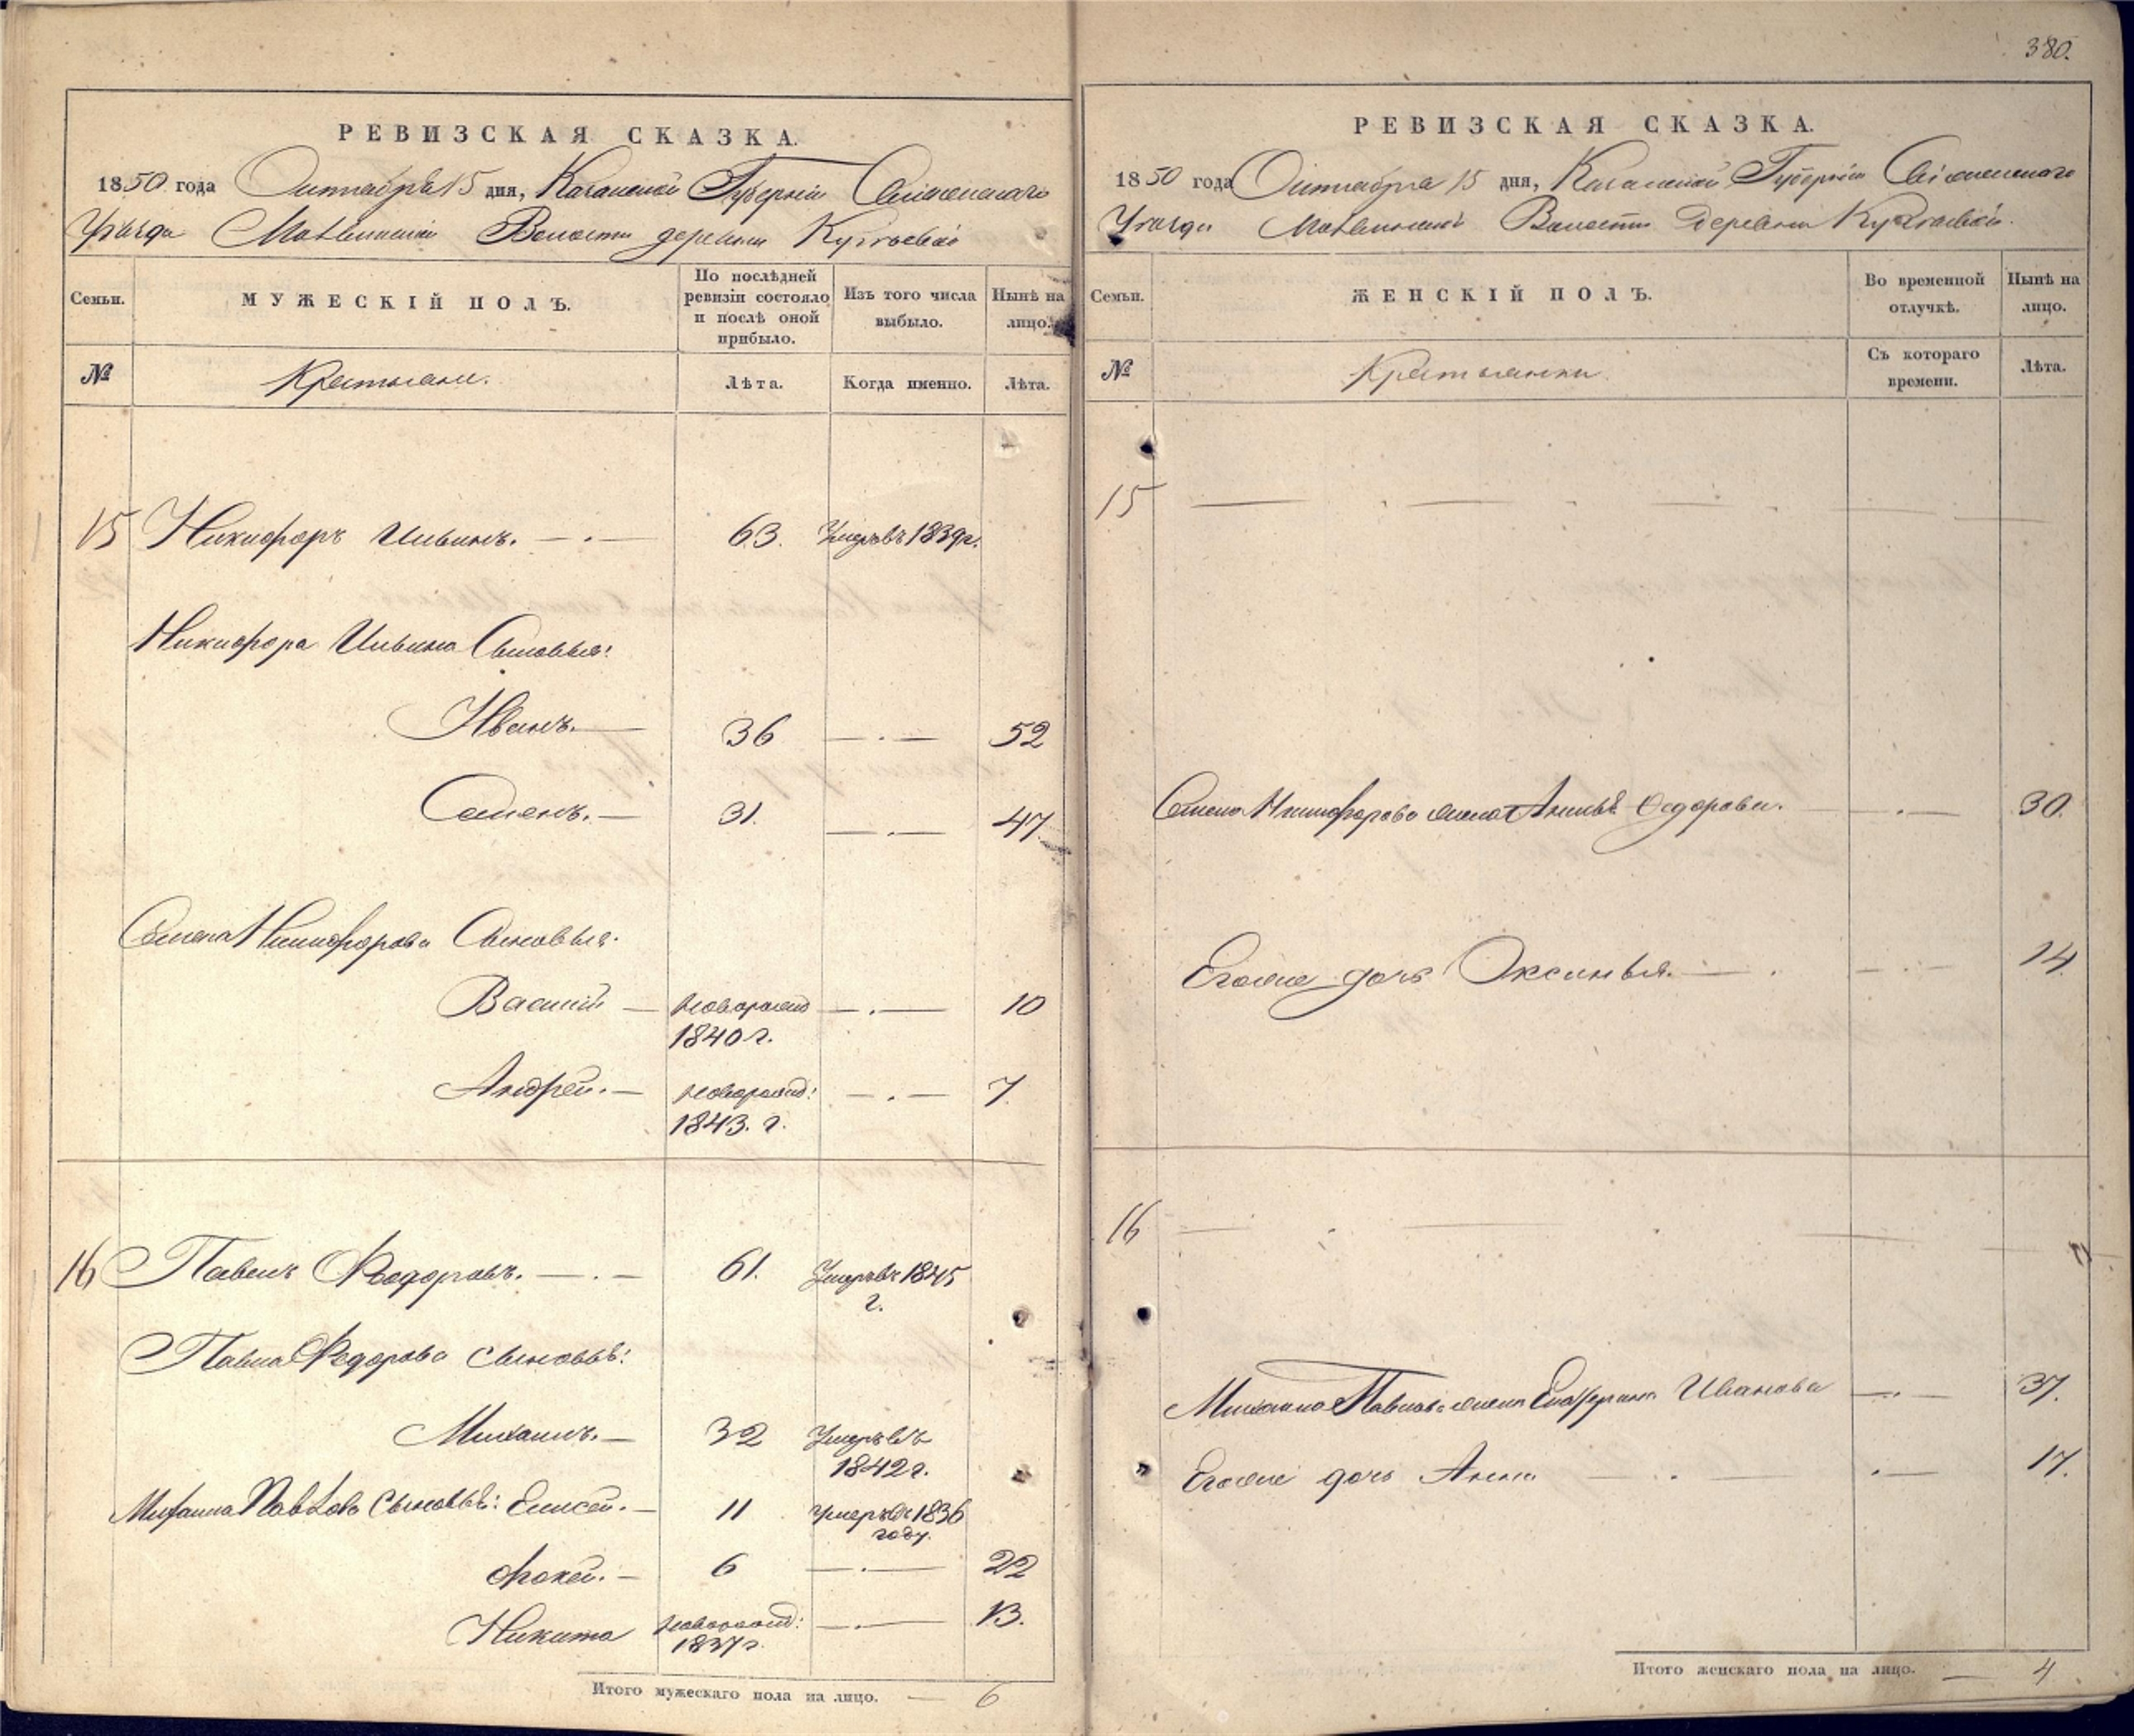 380.
РЕВИЗСКАЯ СКАЗКА.
1850 года Октября 15 дня, Казанской Губерніи Свіяжскаго
Уѣзда Волости деревни
Семьи.
МУЖЕСКІЙ ПОЛЪ.
По послѣдней ревизіи состояло и послѣ оной прибыло.
Изъ того числа выбыло.
Нынѣ на лицо.
№
Крестьяне.
Лѣта.
Когда именно.
Лѣта.
15 Никифоръ Ильинъ. 63. Умеръ въ 1839 г.
Никифора Ильина Сыновья:
Иванъ. 36 52
Семенъ. 31. 47
Семена Никифорова Сыновья:
Василій новорожд 10
1840 г.
Андрей. новорожд: 7
1843. г.
16 Павелъ Федоровъ. 61. Умеръ въ 1845
г.
Павла Федорова сыновья:
Михаилъ. 32 Умеръ въ
1842 г.
Михаила Павлова сыновья: Елисей. 11 умеръ въ 1836
году.
Фокей. 6 22
Никита новорожд: 13.
1837 г.
Итого мужескаго пола на лицо. 6
РЕВИЗСКАЯ СКАЗКА.
1850 года Октября 15 дня, Казанской Губерніи Свіяжскаго
Уѣзда Волости деревни
Семьи.
ЖЕНСКІЙ ПОЛЪ.
Во временной отлучкѣ.
Нынѣ на лицо.
№
Крестьянки
Съ котораго времени.
Лѣта.
15
Семена Никифорова жена Федорова. 30.
Егоже дочь Оксинья. 14.
16
Михаила Павлова жена Иванова 37.
Егоже дочь Анна 17.
Итого женскаго пола на лицо. 4